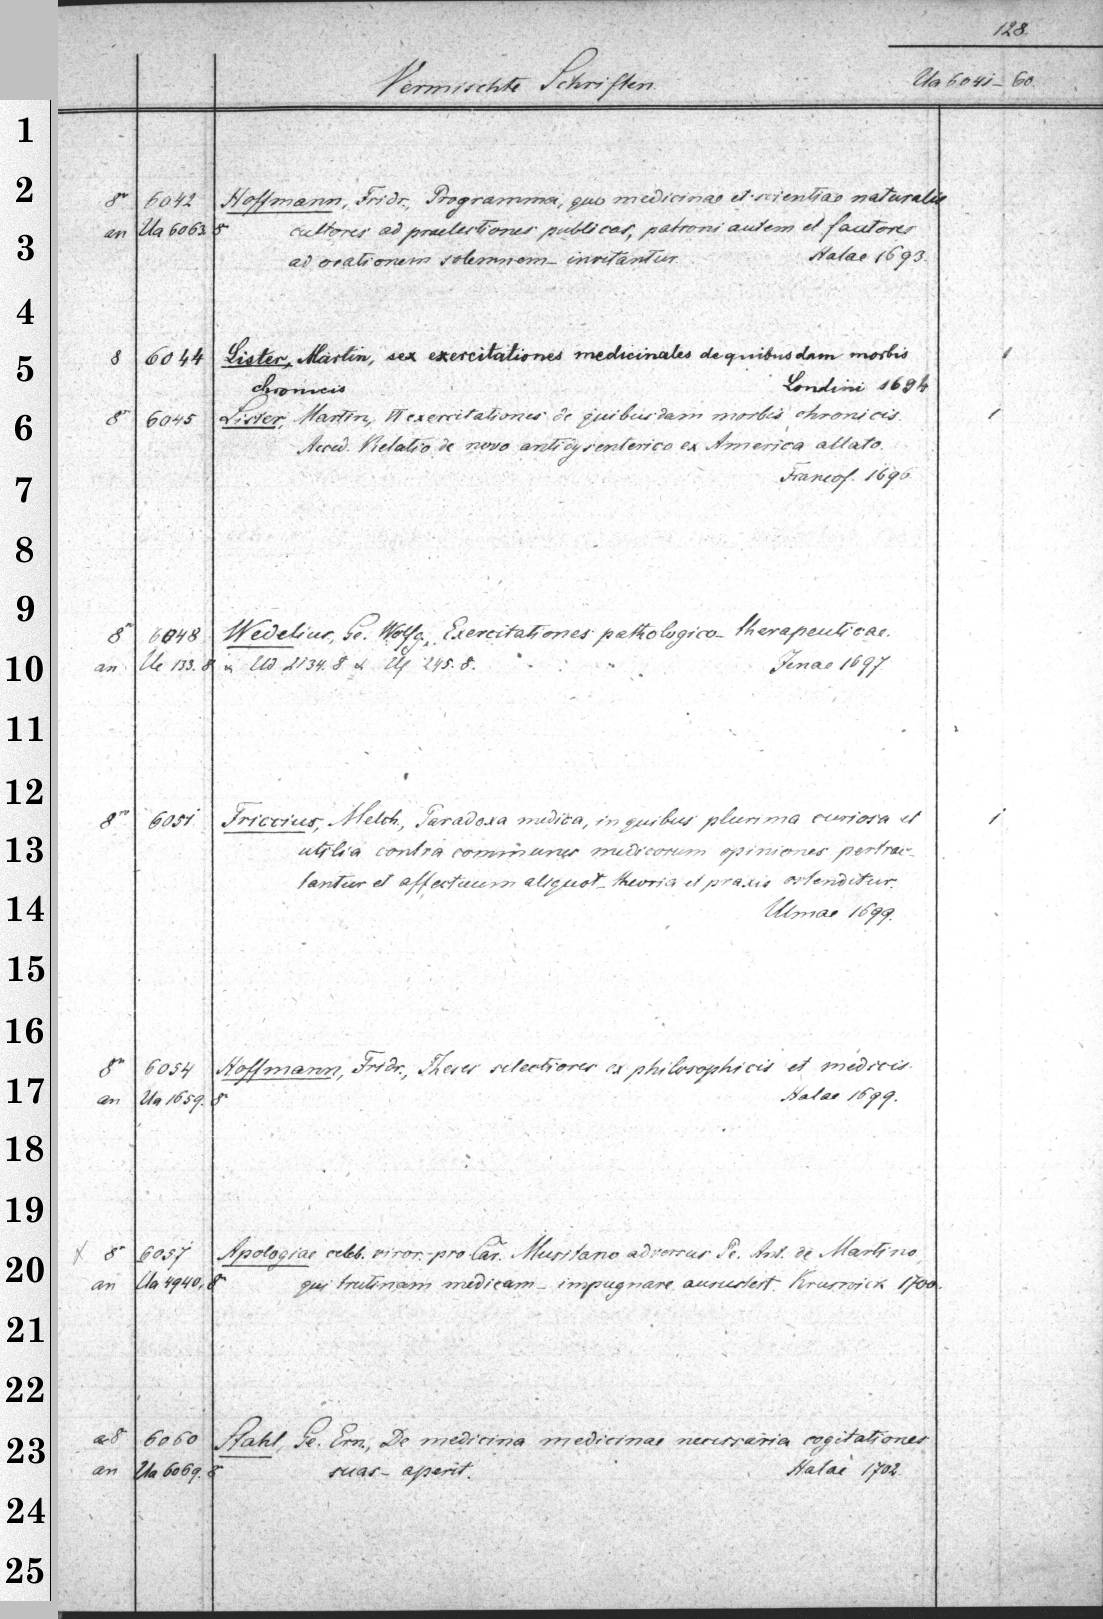 128
Vermischte Schriften.
Ua 6041-60
1
2
8° 6042 Hoffmann, Fridr., Programma, quo medicinae et scientiae naturalis
an Ua 6063. 8 cultores ad praelectiones publicas, patroni autem et fautores
3
ad orationem solemnem - invitantur. Halae 1693.
4
8 6044 Lister, Martin, sex exercitationes medicinales de quibusdam morbis 1
5
chronicis Londini 1694
6
8° 6045 Lister, Martin, VI exercitationes de quibusdam morbis chronicis. 1
Acced. Relatio de novo antidysenterico ex America allato.
7
Francof. 1696
8
9
8° 6048 Wedelius, Ge. Wolfg., Exercitationes pathologico-therapeuticae.
10
an Ue 133. 8 & Ud 2134. 8 & Uf 245. 8. Jenae 1697
11
12
8° 6051 Friccius, Melch., Paradoxa medica, in quibus plurima curiosa et 1
13
utilia contra communes medicorum opiniones pertrac-
tantur et affectuum aliquot - theoria et praxis ostenditur.
14
Ulmae 1699.
15
16
8° 6054 Hoffmann, Fridr., Theses selectiores ex philosophicis et medicis.
17
an Ua 1659. 8 Halae 1699.
18
19
8° 6057 Apologiae celeb. viror. pro Car. Musitano adversus Pe. Ant. de Martino,
20
an Ua 4940. 8 qui trutinam medicam - impugnare ausus est. Kruswick 1700.
21
22
8 6060 Stahl, Ge. Ern., De medicina medicinae necessaria cogitationes
23
an Ua 6069. 8 suas - aperit. Halae 1702.
24
25